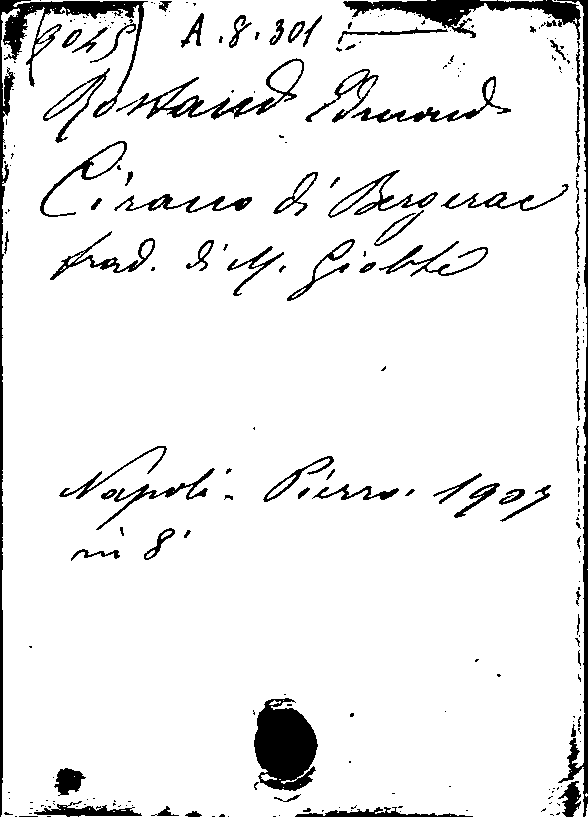 (9045) A.8.301
Rostand Edmond
Cirano di Bergerac
trad. di M. Giobbe
Napoli - Pierro. 1907
in 8°